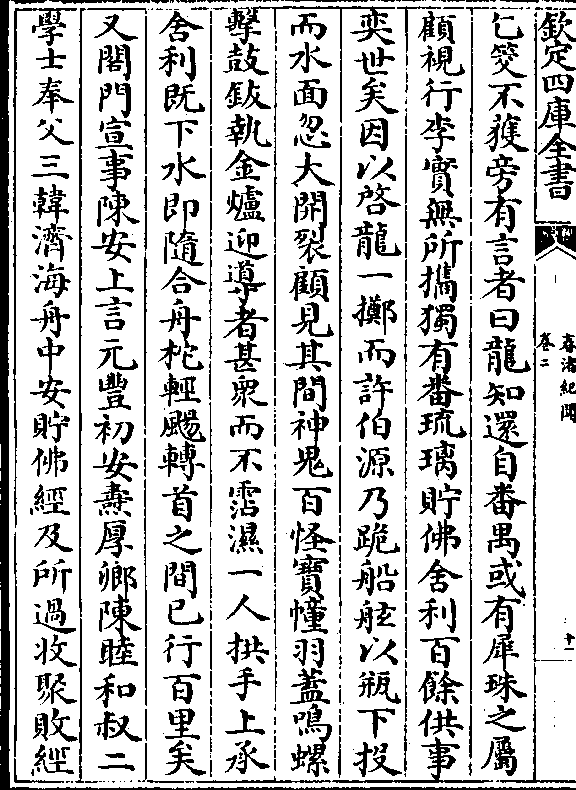 欽定四庫全書
春渚紀聞
卷二
十一
乞筊不獲旁有言者曰龍知還自番禺或有犀珠之屬
顧視行李實無所攜獨有番琉璃貯佛舍利百餘供事
奕世矣因以啓龍一擲而許伯源乃跪船舷以瓶下投
而水面忽大開裂顧見其間神鬼百怪寶幢羽蓋鳴螺
擊鼓鈸執金爐迎導者甚衆而不霑濕一人拱手上承
舍利既下水即隨合舟柁輕颺轉首之間已行百里矣
又閤門宣事陳安上言元豐初安燾厚卿陳睦和叔二
學士奉父三韓濟海舟中安貯佛經及所過收聚敗經